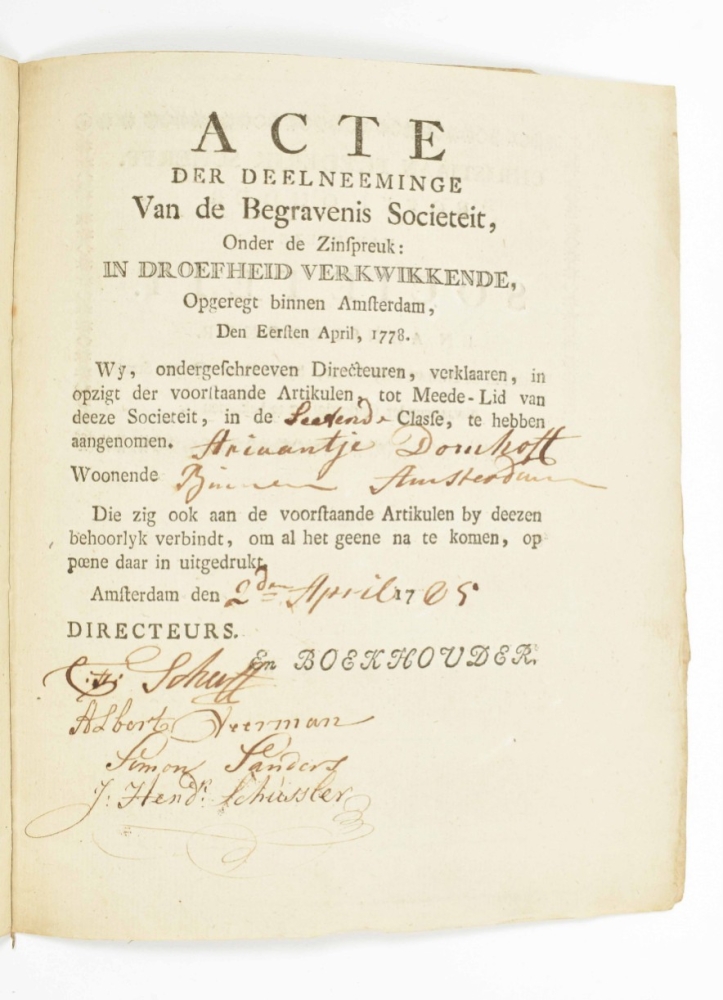 ACTE
DER DEELNEEMINGE
Van de Begravenis Societeit,
Onder de Zinſpreuk:
IN DROEFHEID VERKWIKKENDE,
Opgeregt binnen Amſterdam,
Den Eerſten April, 1778.
Wy, ondergeſchreeven Directeuren, verklaaren, in
opzigt der voorſtaande Artikulen, tot Meede-Lid van
deeze Societeit, in de Claſſe, te hebben
aangenomen. Ariaantje Domhoff
Woonende Binnen Amsterdam
Die zig ook aan de voorſtaande Artikulen by deezen
behoorlyk verbindt, om al het geene na te komen, op
pœne daar in uitgedrukt.
Amſterdam den 2den April 1785
DIRECTEURS.
En BOEKHOUDER.
Schuff
Albert Veerman
Simon Sanders
J: Hendr. Schüssler